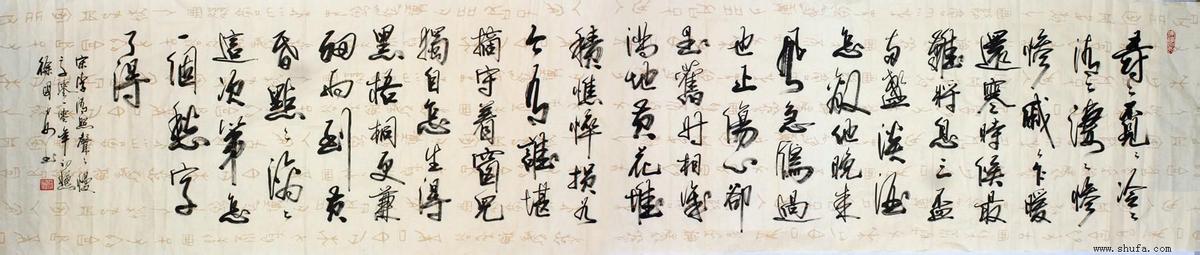 尋〻覓〻冷〻
清〻淒〻慘
慘戚〻乍暖
還寒時候最
難將息三盃
兩盞淡酒
怎敵他晚來
風急雁過
也正傷心卻
是舊时相識
满地黄花堆
積憔悴損如
今有誰堪
摘守着窗兒
獨自怎生得
黑梧桐更兼
細雨到黄
昏點〻滴〻
這次第怎
一個愁字
了得
宋李清照聲〻慢
www.shufa.com